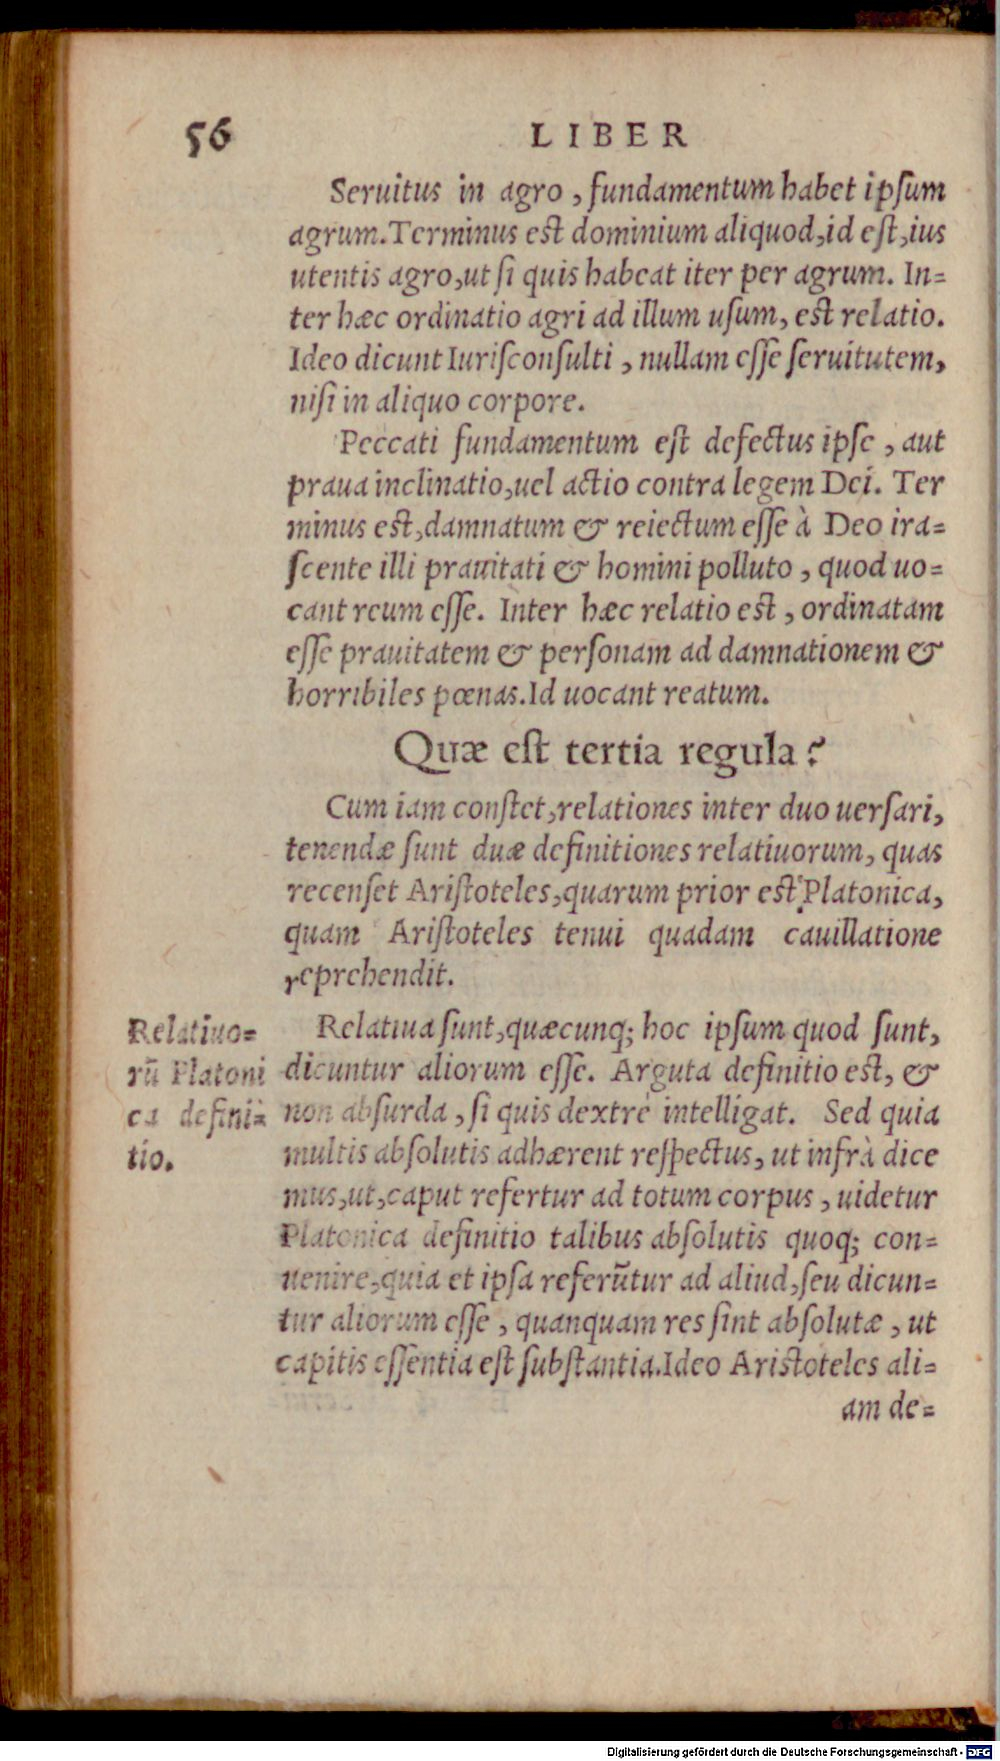 56
LIBER
Seruitus in agro, fundamentum habet ipſum
agrum. Terminus est dominium aliquod, id eſt, ius
utentis agro, ut ſi quis habeat iter per agrum. In-
ter hæc ordinatio agri ad illum uſum, est relatio.
Ideo dicunt Iuriſconſulti, nullam eſſe ſeruitutem,
niſi in aliquo corpore.
Peccati fundamentum eſt defectus ipſe, aut
praua inclinatio, uel actio contra legem Dei. Ter
minus est, damnatum & reiectum eſſe à Deo ira-
ſcente illi prauitati & homini polluto, quod uo-
cant reum eſſe. Inter hæc relatio est, ordinatam
eſſe prauitatem & perſonam ad damnationem &
horribiles pœnas. Id uocant reatum.
Quæ est tertia regula?
Cum iam conſtet, relationes inter duo uerſari,
tenendæ ſunt duæ definitiones relatiuorum, quas
recenſet Ariſtoteles, quarum prior est Platonica,
quam Ariſtoteles tenui quadam cauillatione
reprehendit.
Relatiuo-
rū Platoni
ca defini-
tio.
Relatiua ſunt, quæcunq; hoc ipſum quod ſunt,
dicuntur aliorum eſſe. Arguta definitio eſt, &
non abſurda, ſi quis dextrè intelligat. Sed quia
multis abſolutis adhærent reſpectus, ut infrà dice
mus, ut, caput refertur ad totum corpus, uidetur
Platonica definitio talibus abſolutis quoq; con-
uenire, quia et ipſa referūtur ad aliud, ſeu dicun-
tur aliorum eſſe, quanquam res ſint abſolutæ, ut
capitis eſſentia eſt ſubſtantia. Ideo Ariſtoteles ali-
am de-
Digitalisierung gefördert durch die Deutsche Forschungsgemeinschaft - DFG